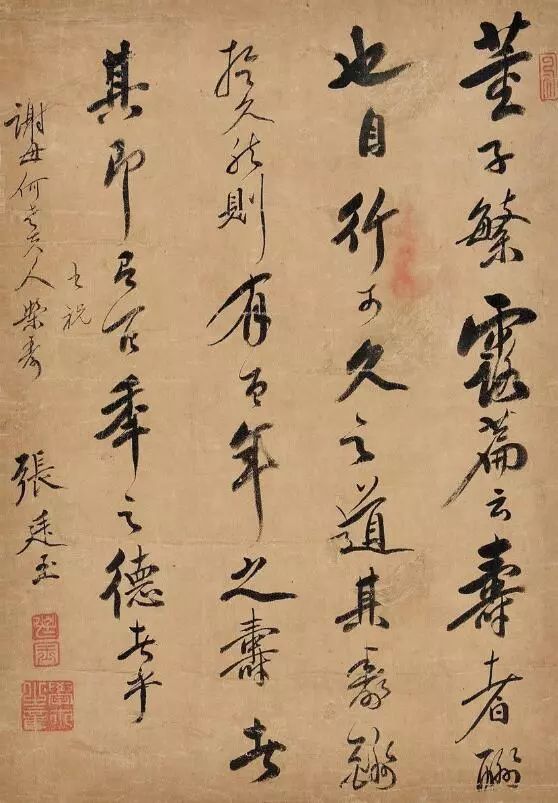 董子繁露篇云壽者酬
也自行可久之道其壽讎
於久然則有百年之壽者
其即有百年之德者乎
謝母何老夫人榮壽
書祝
張廷玉